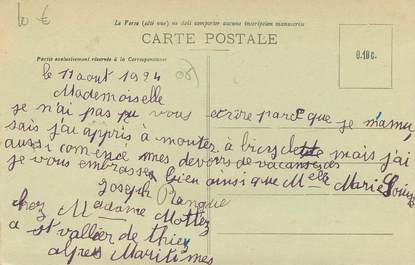 10 €
La Carte (côté vue) ne doit comporter aucune inscription manuscrite
CARTE POSTALE
Partie exclusivement réservée à la Correspondance
0.10 c.
le 11 aout 1924 (06)
Mademoiselle
je n'ai pas pu vous ecrire parce que je m'amu
sais j'ai appris à monter à biciclette mais j'ai
aussi comencé mes devoirs de vacances
je vous embrasse bien ainsi que Melle Marie Louise
Joseph
chez Madame Mottez
a St vallier de thiey
alpes Maritimes